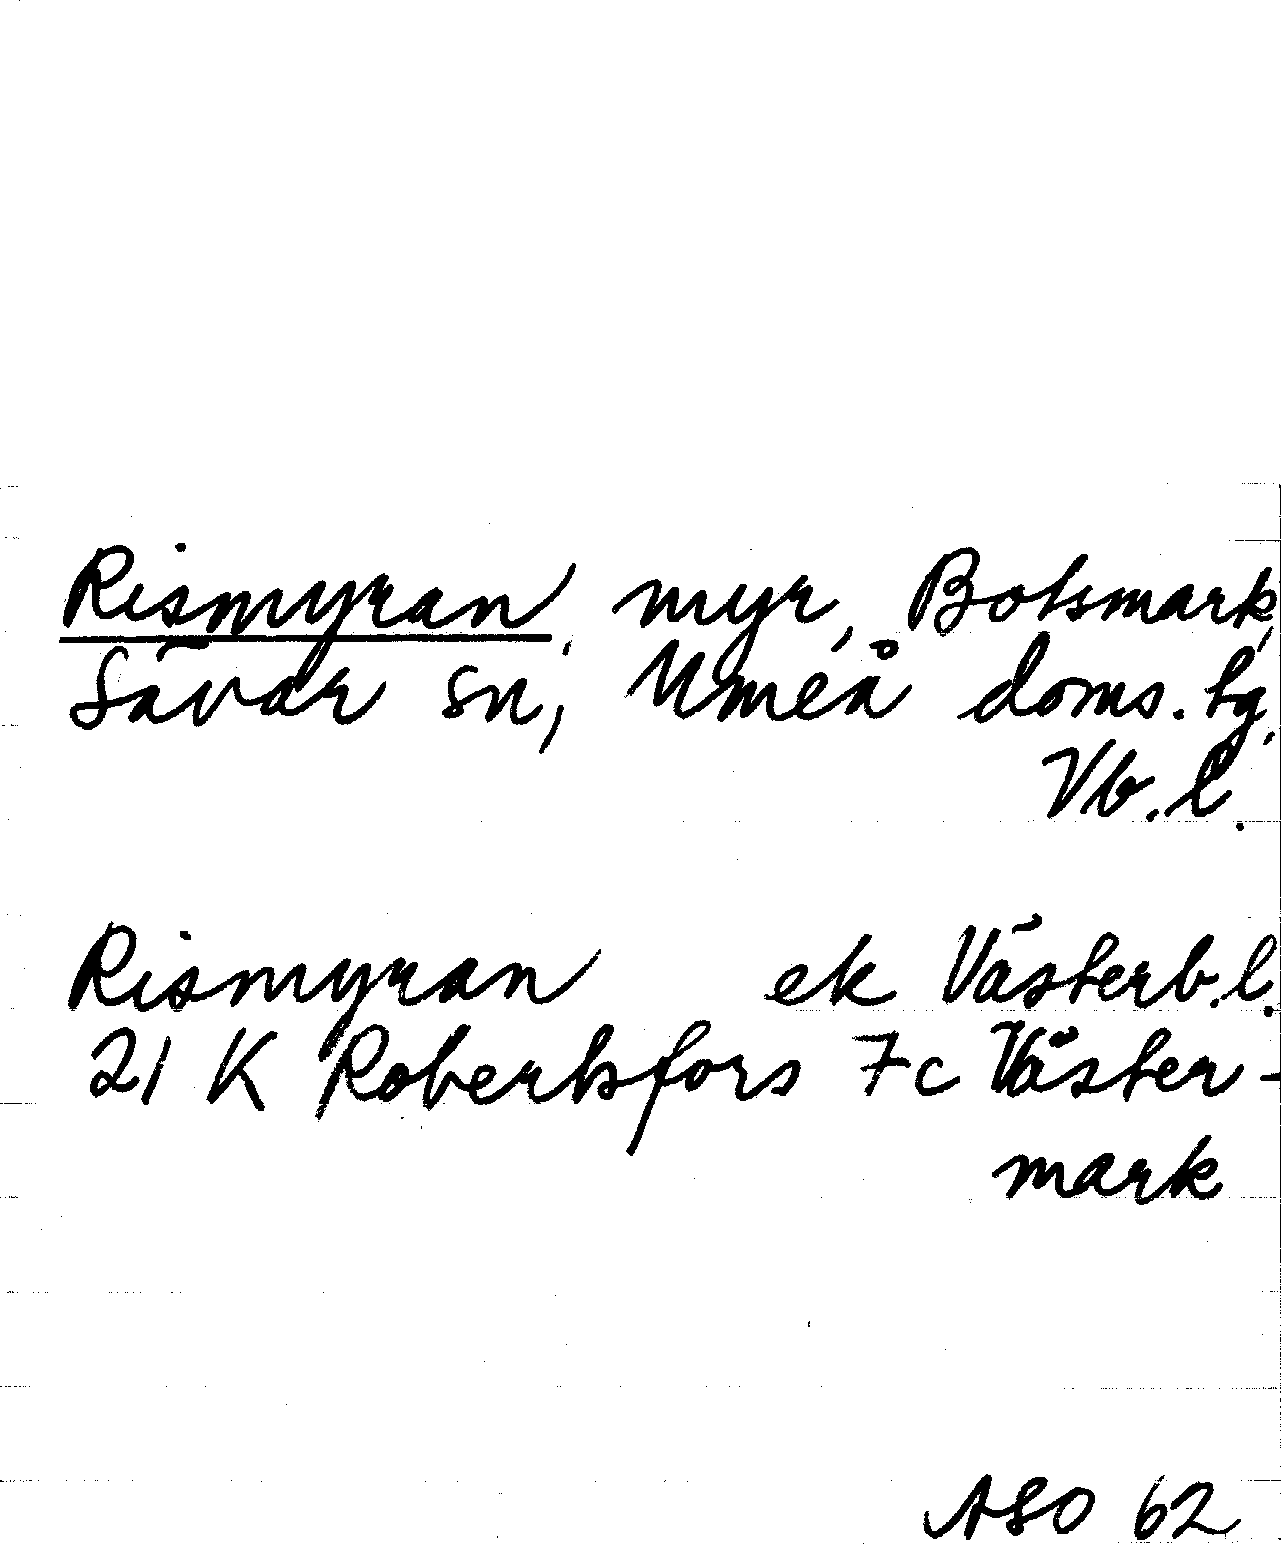 Rismyran, myr, Botsmark,
Sävar sn, Umeå doms. tg,
Vb. l.
Rismyran ek Västerb. l.
21 K Robertsfors 7 c Väster-
mark
ASO 62